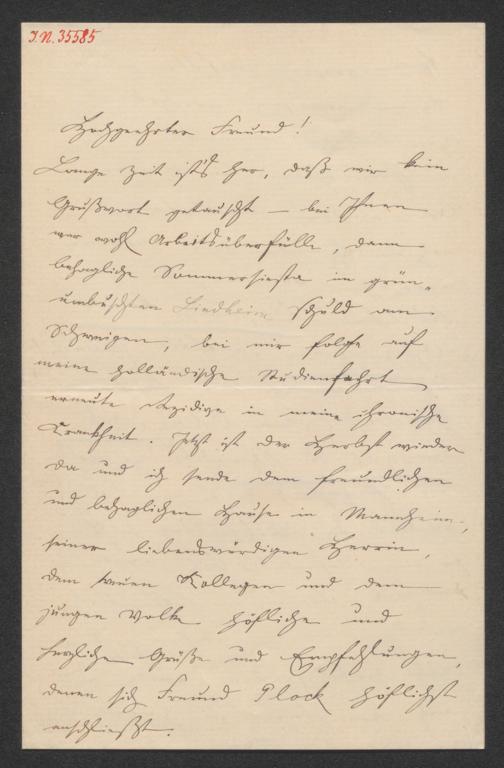 I.N. 35585
Hochgeehrter Freund!
Lange Zeit ist's her, daß wir kein
Grußwort getauscht – bei Ihnen
war wohl Arbeitsüberfülle, dann
behagliche Sommersiesta in grün-
umbuschten Liedheim schuld am
Schweigen, bei mir folgte auf
meine holländische Studienfahrt
erneute Rezidive in meine chronische
Krankheit. Jetzt ist der Herbst wieder
da und ich sende dem freundlichen
und behaglichen Hause in Mannheim,
seiner liebenswürdigen Herrin,
dem treuen Kollegen und dem
jungen Volke höfliche und
herzliche Grüße und Empfehlungen,
denen sich Freund Plock höflichst
anschließt.